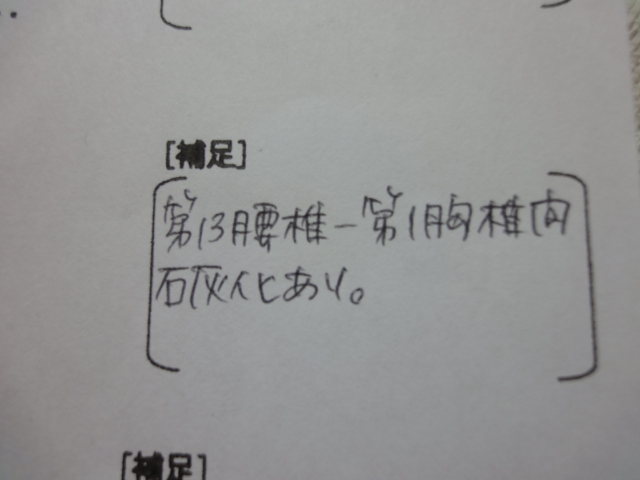 [補足]
第13腰椎-第1胸椎内
石灰化あり。
[補足]